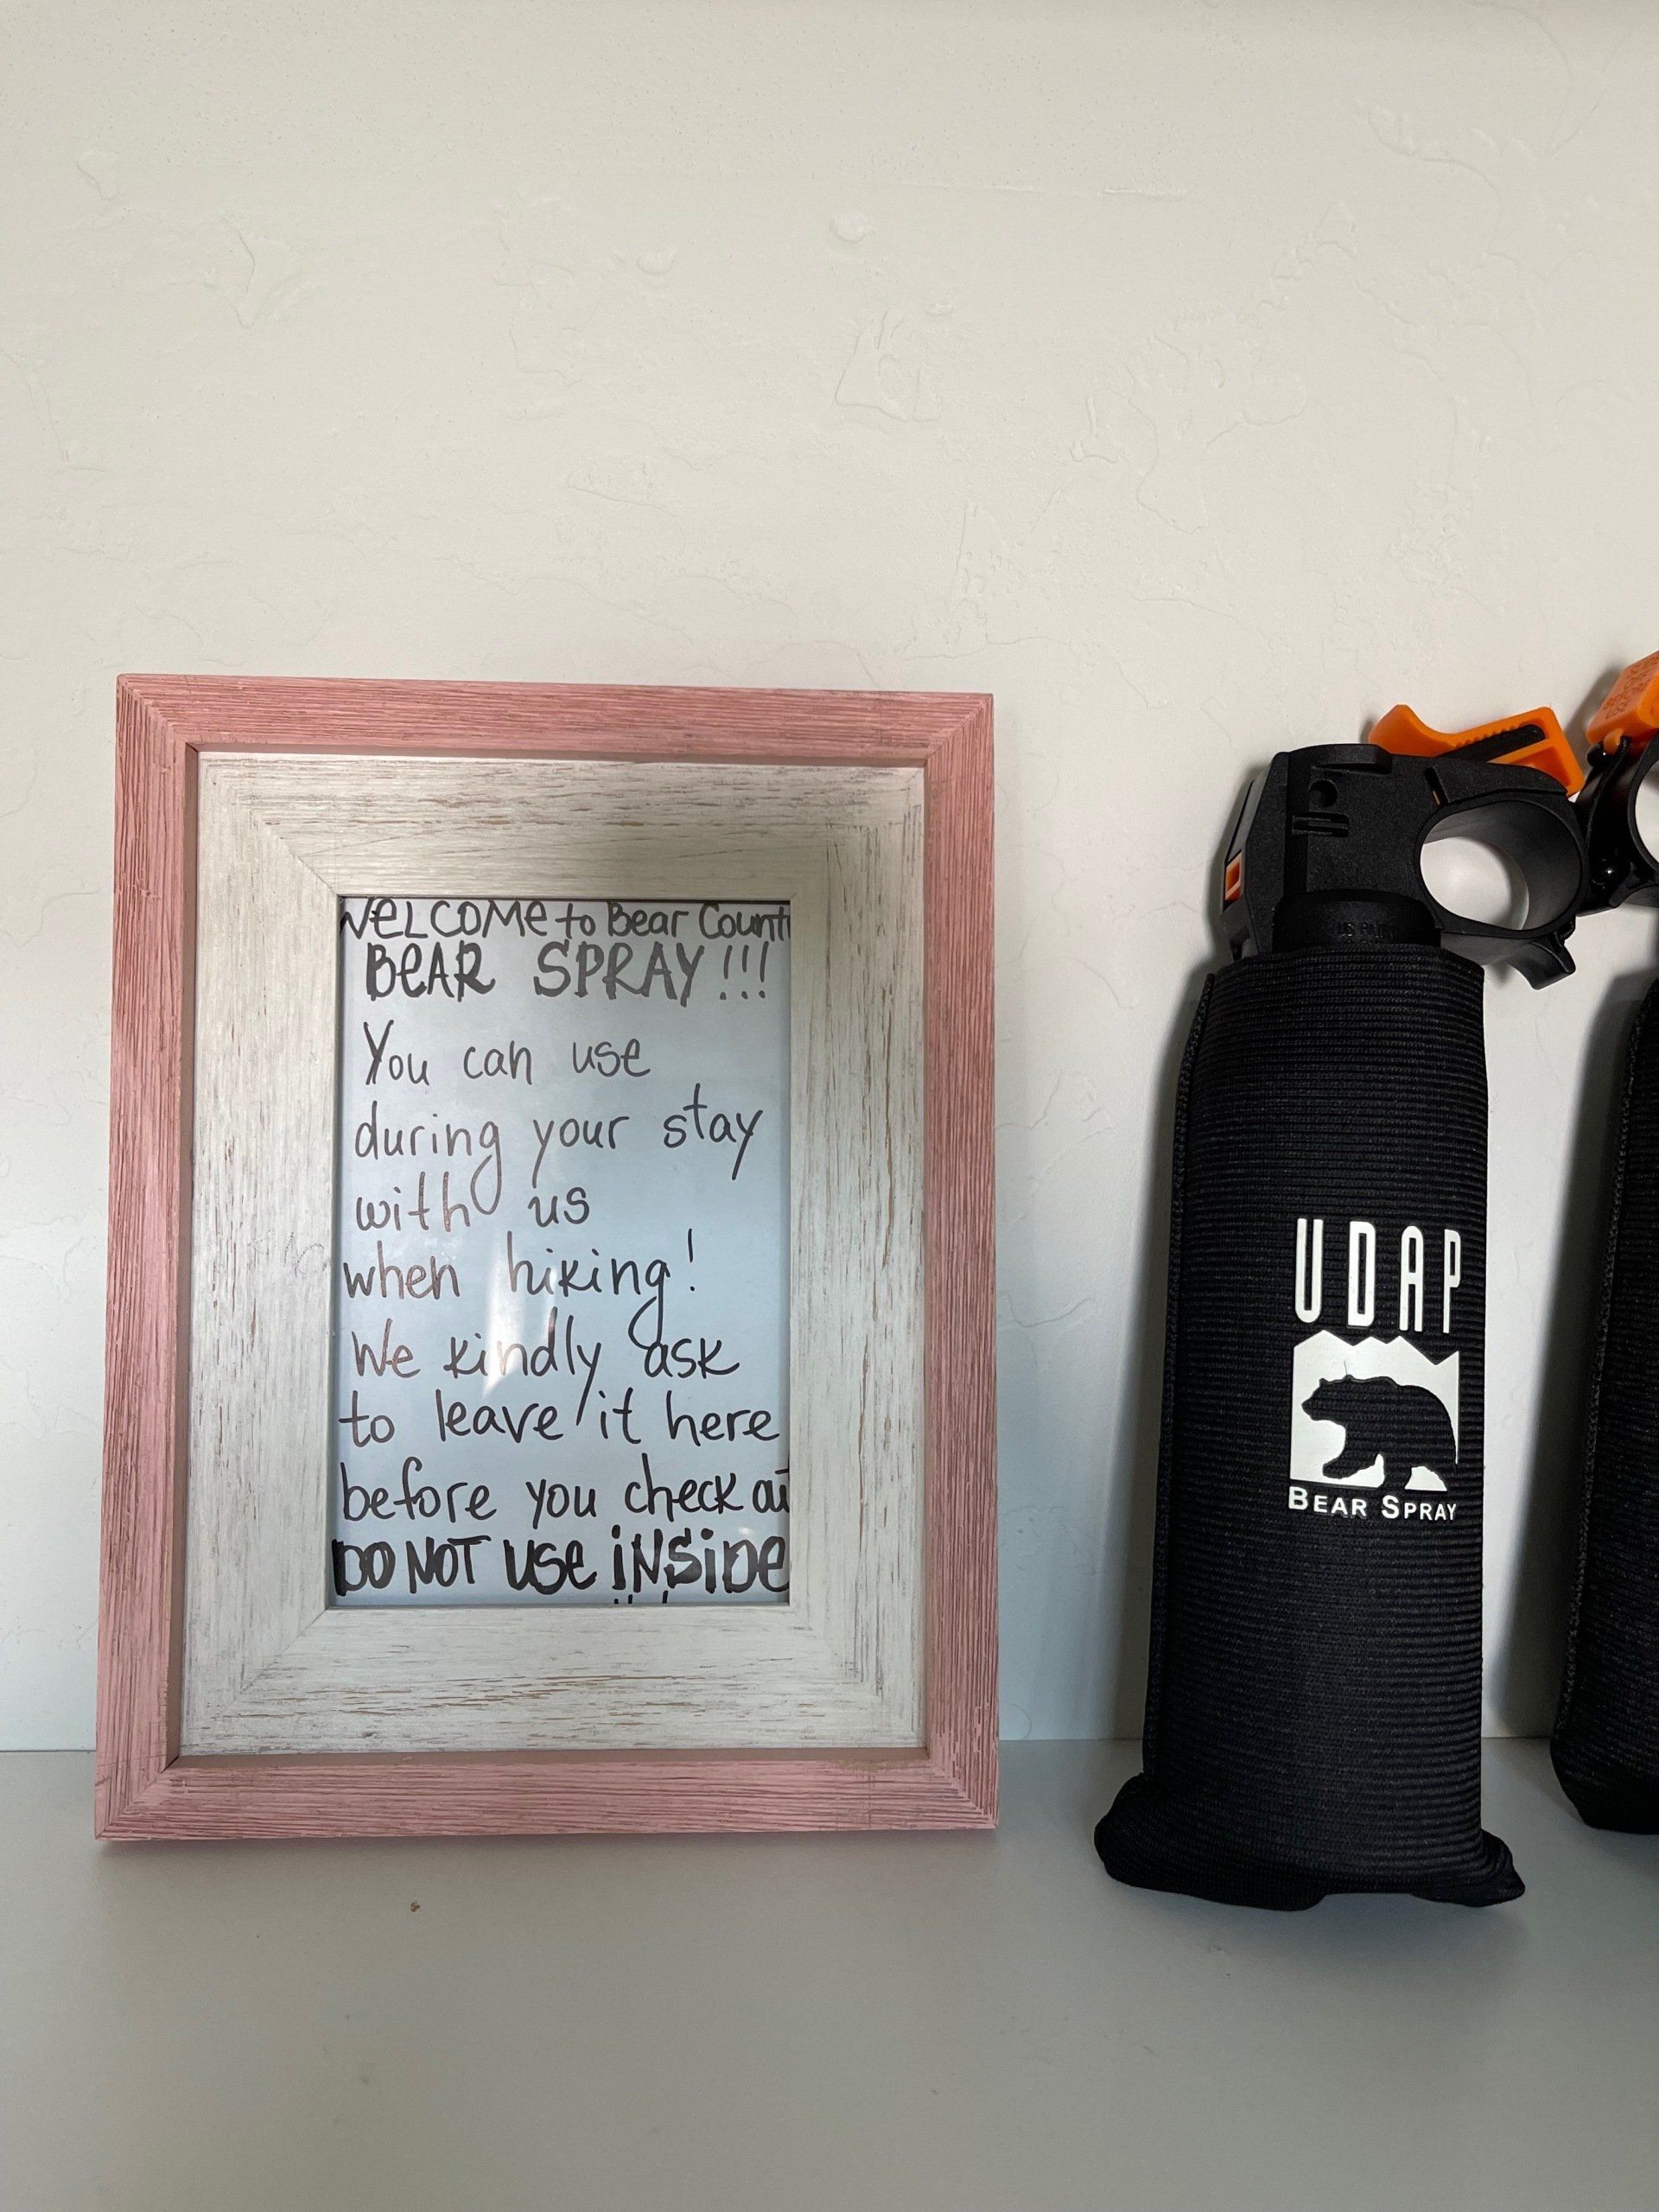 WELCOME to Bear Count
BEAR SPRAY!!!
You can use
during your stay
with us
when hiking!
We kindly ask
to leave it here
before you check ou
DO NOT USE INSIDE
UDAP
BEAR SPRAY